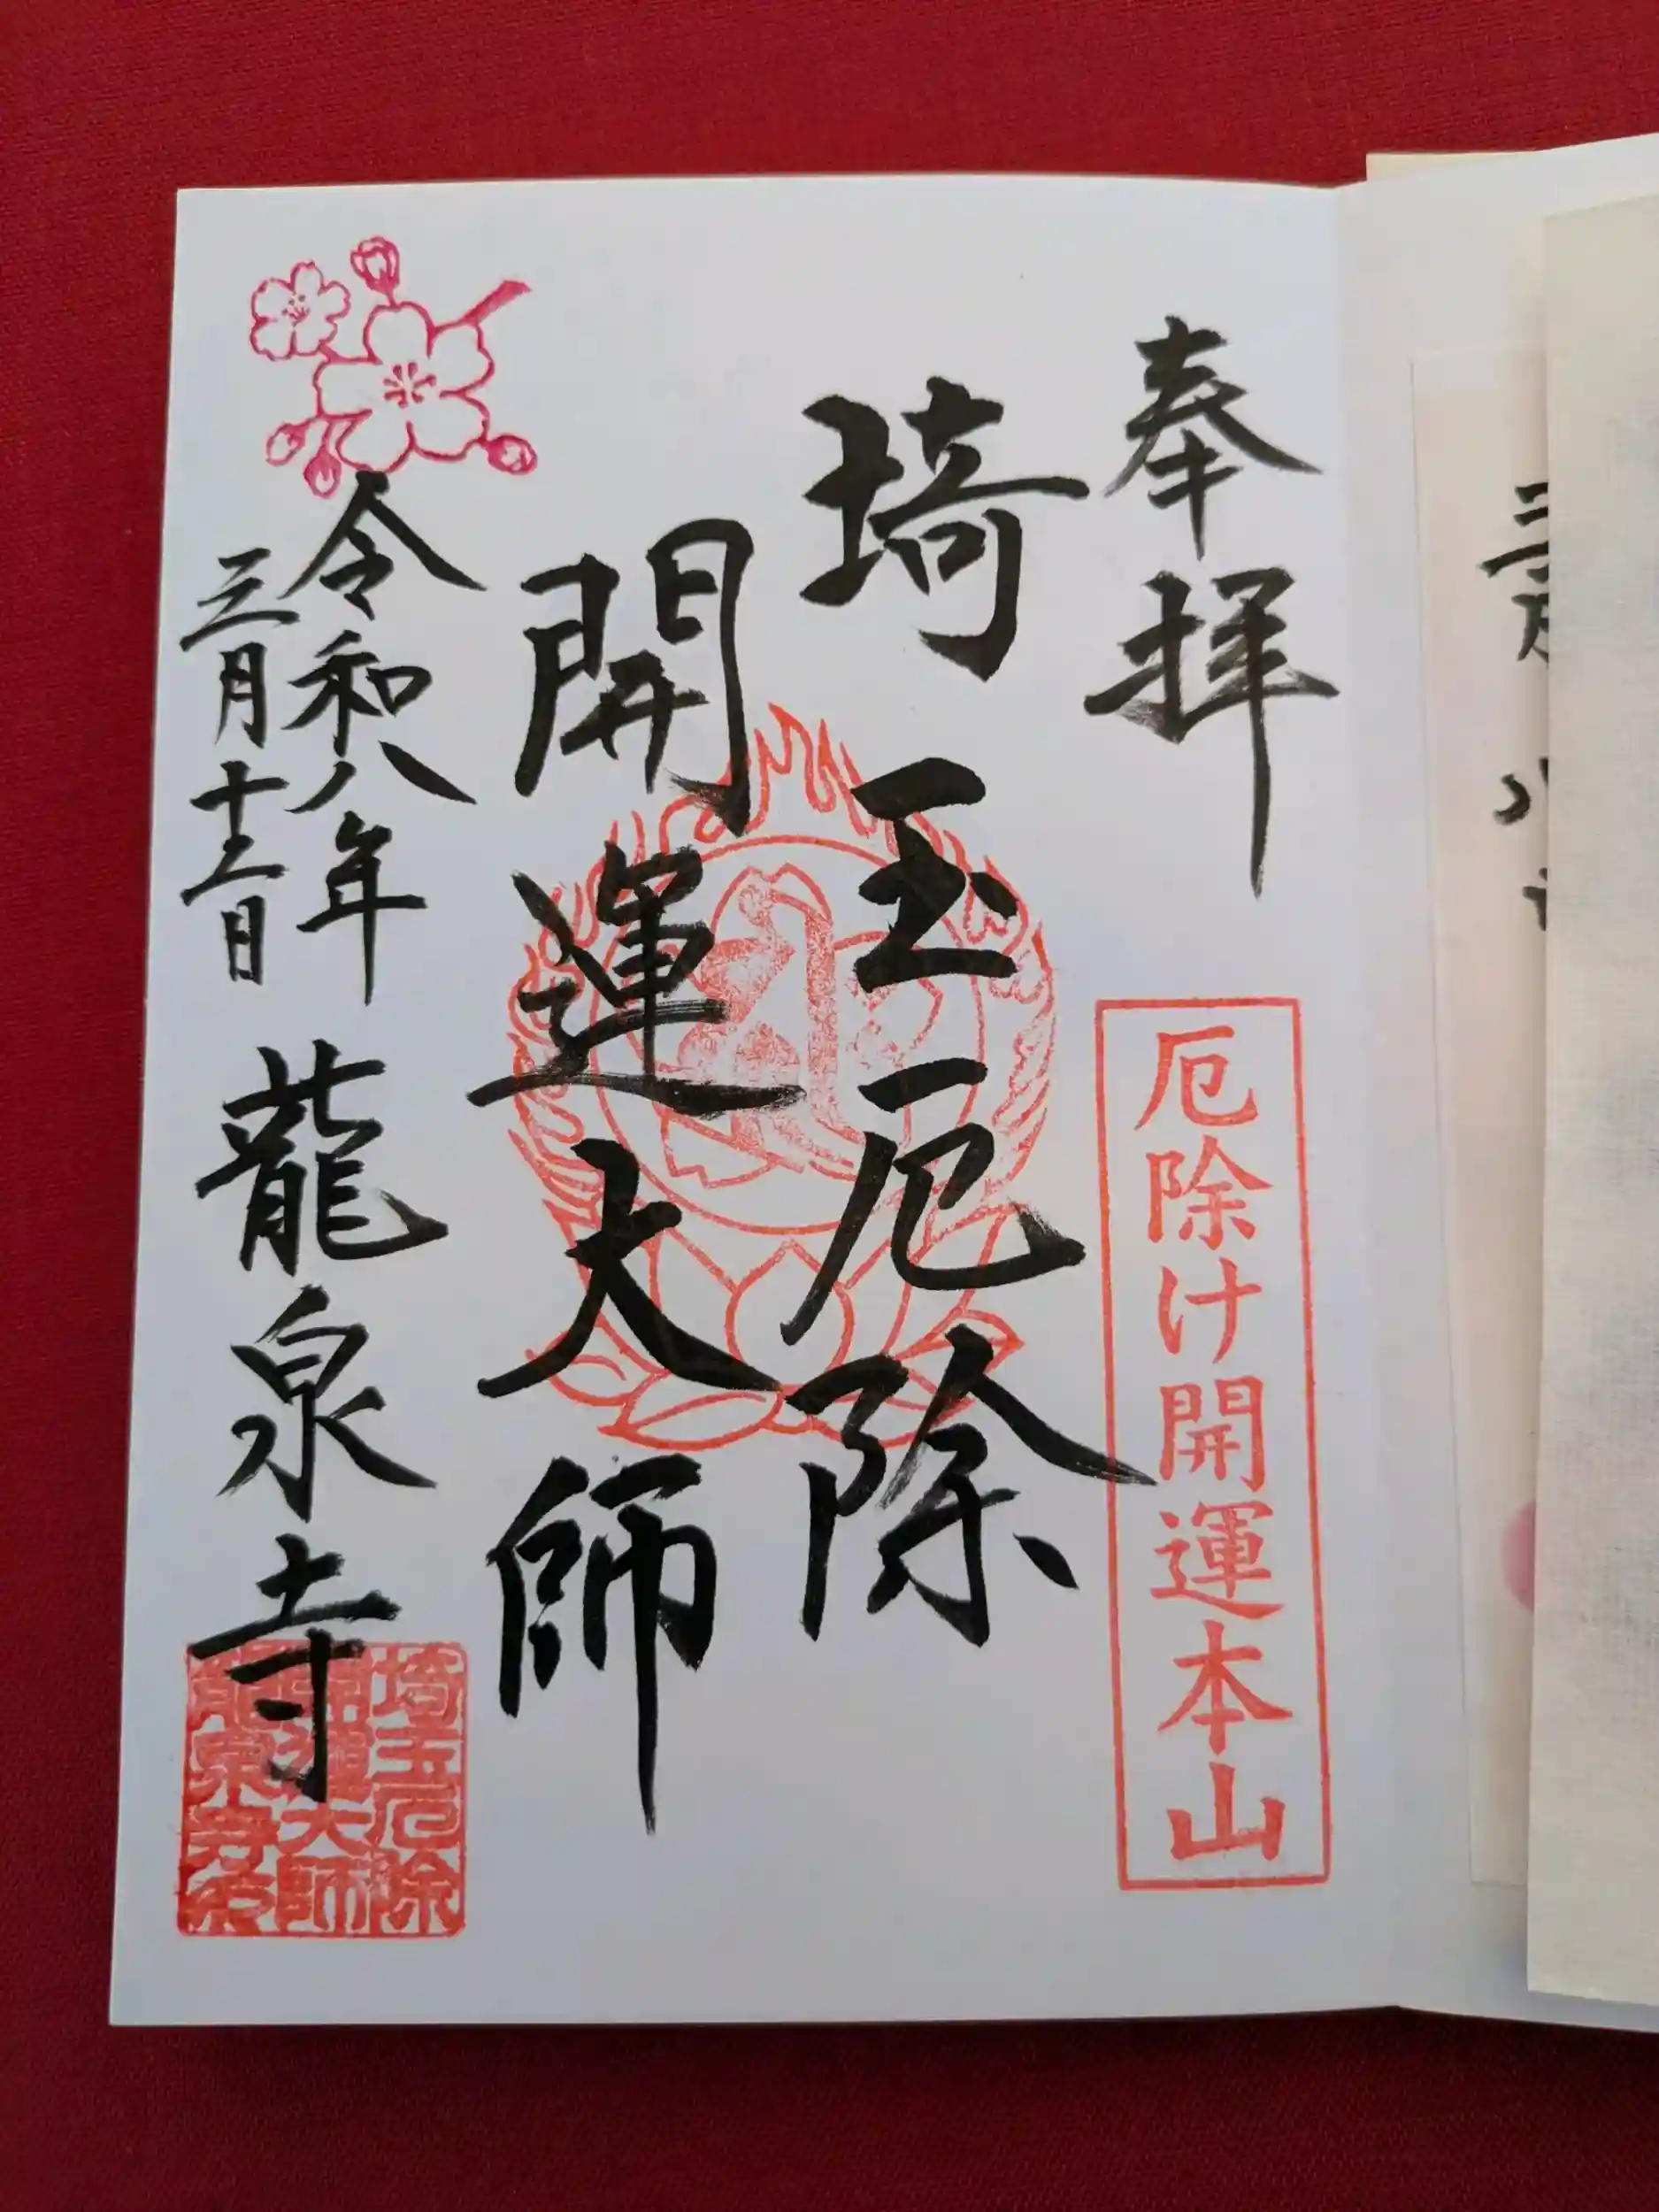 奉拝
厄除け開運本山
埼玉厄除
開運大師
令和八年
三月十二日
龍泉寺
埼玉厄除
開運大師